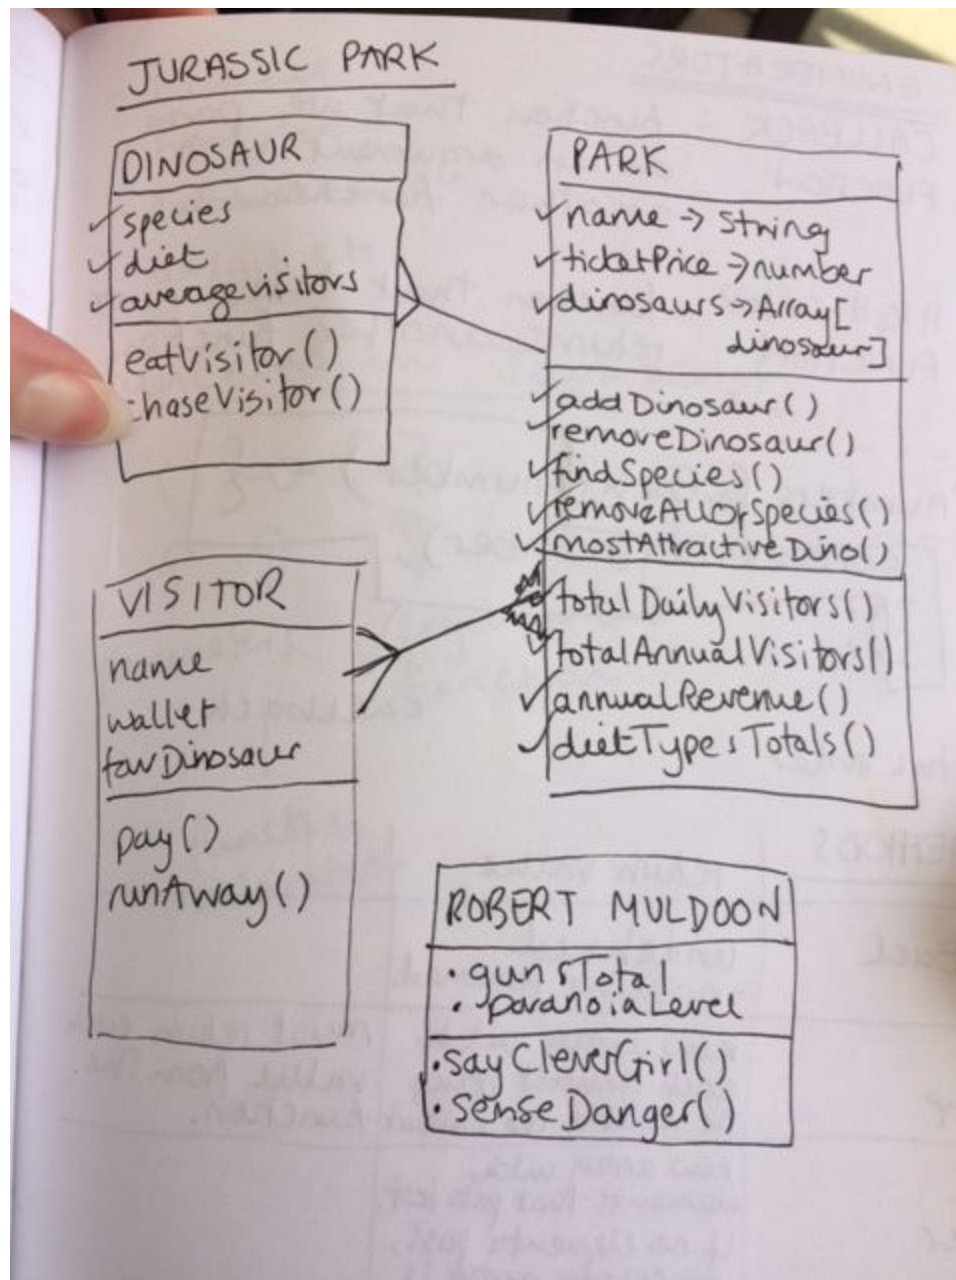 JURASSIC PARK
DINOSAUR
✓ species
✓ diet
✓ averagevisitors
eatVisitor()
chaseVisitor()
PARK
✓ name → String
✓ ticketPrice → number
✓ dinosaurs → Array[
dinosaur]
✓ addDinosaur()
✓ removeDinosaur()
✓ findSpecies()
✓ removeAllOfSpecies()
✓ mostAttractiveDino()
✓ totalDailyVisitors()
✓ totalAnnualVisitors()
✓ annualRevenue()
✓ dietTypesTotals()
VISITOR
name
wallet
favDinosaur
pay()
runAway()
ROBERT MULDOON
• gunsTotal
• paranoiaLevel
• sayCleverGirl()
• senseDanger()